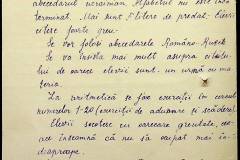 abecedarul ucrainian. Alfabetul nu este încă
terminat. Mai sunt 7 litere de predat. Elevii
citesc foarte greu.
Se vor folosi abecedarele Româno-Rusești
Se va insista mai mult asupra cititului
de oarece elevii sunt în urmă cu ma
teria.
La aritmetică se fac exerciții în cercul
numerelor 1-20 (exerciții de adunare și scădere).
Elevii socotesc cu oarecare greutate, ceea
ce înseamnă că nu s'a
aproape.